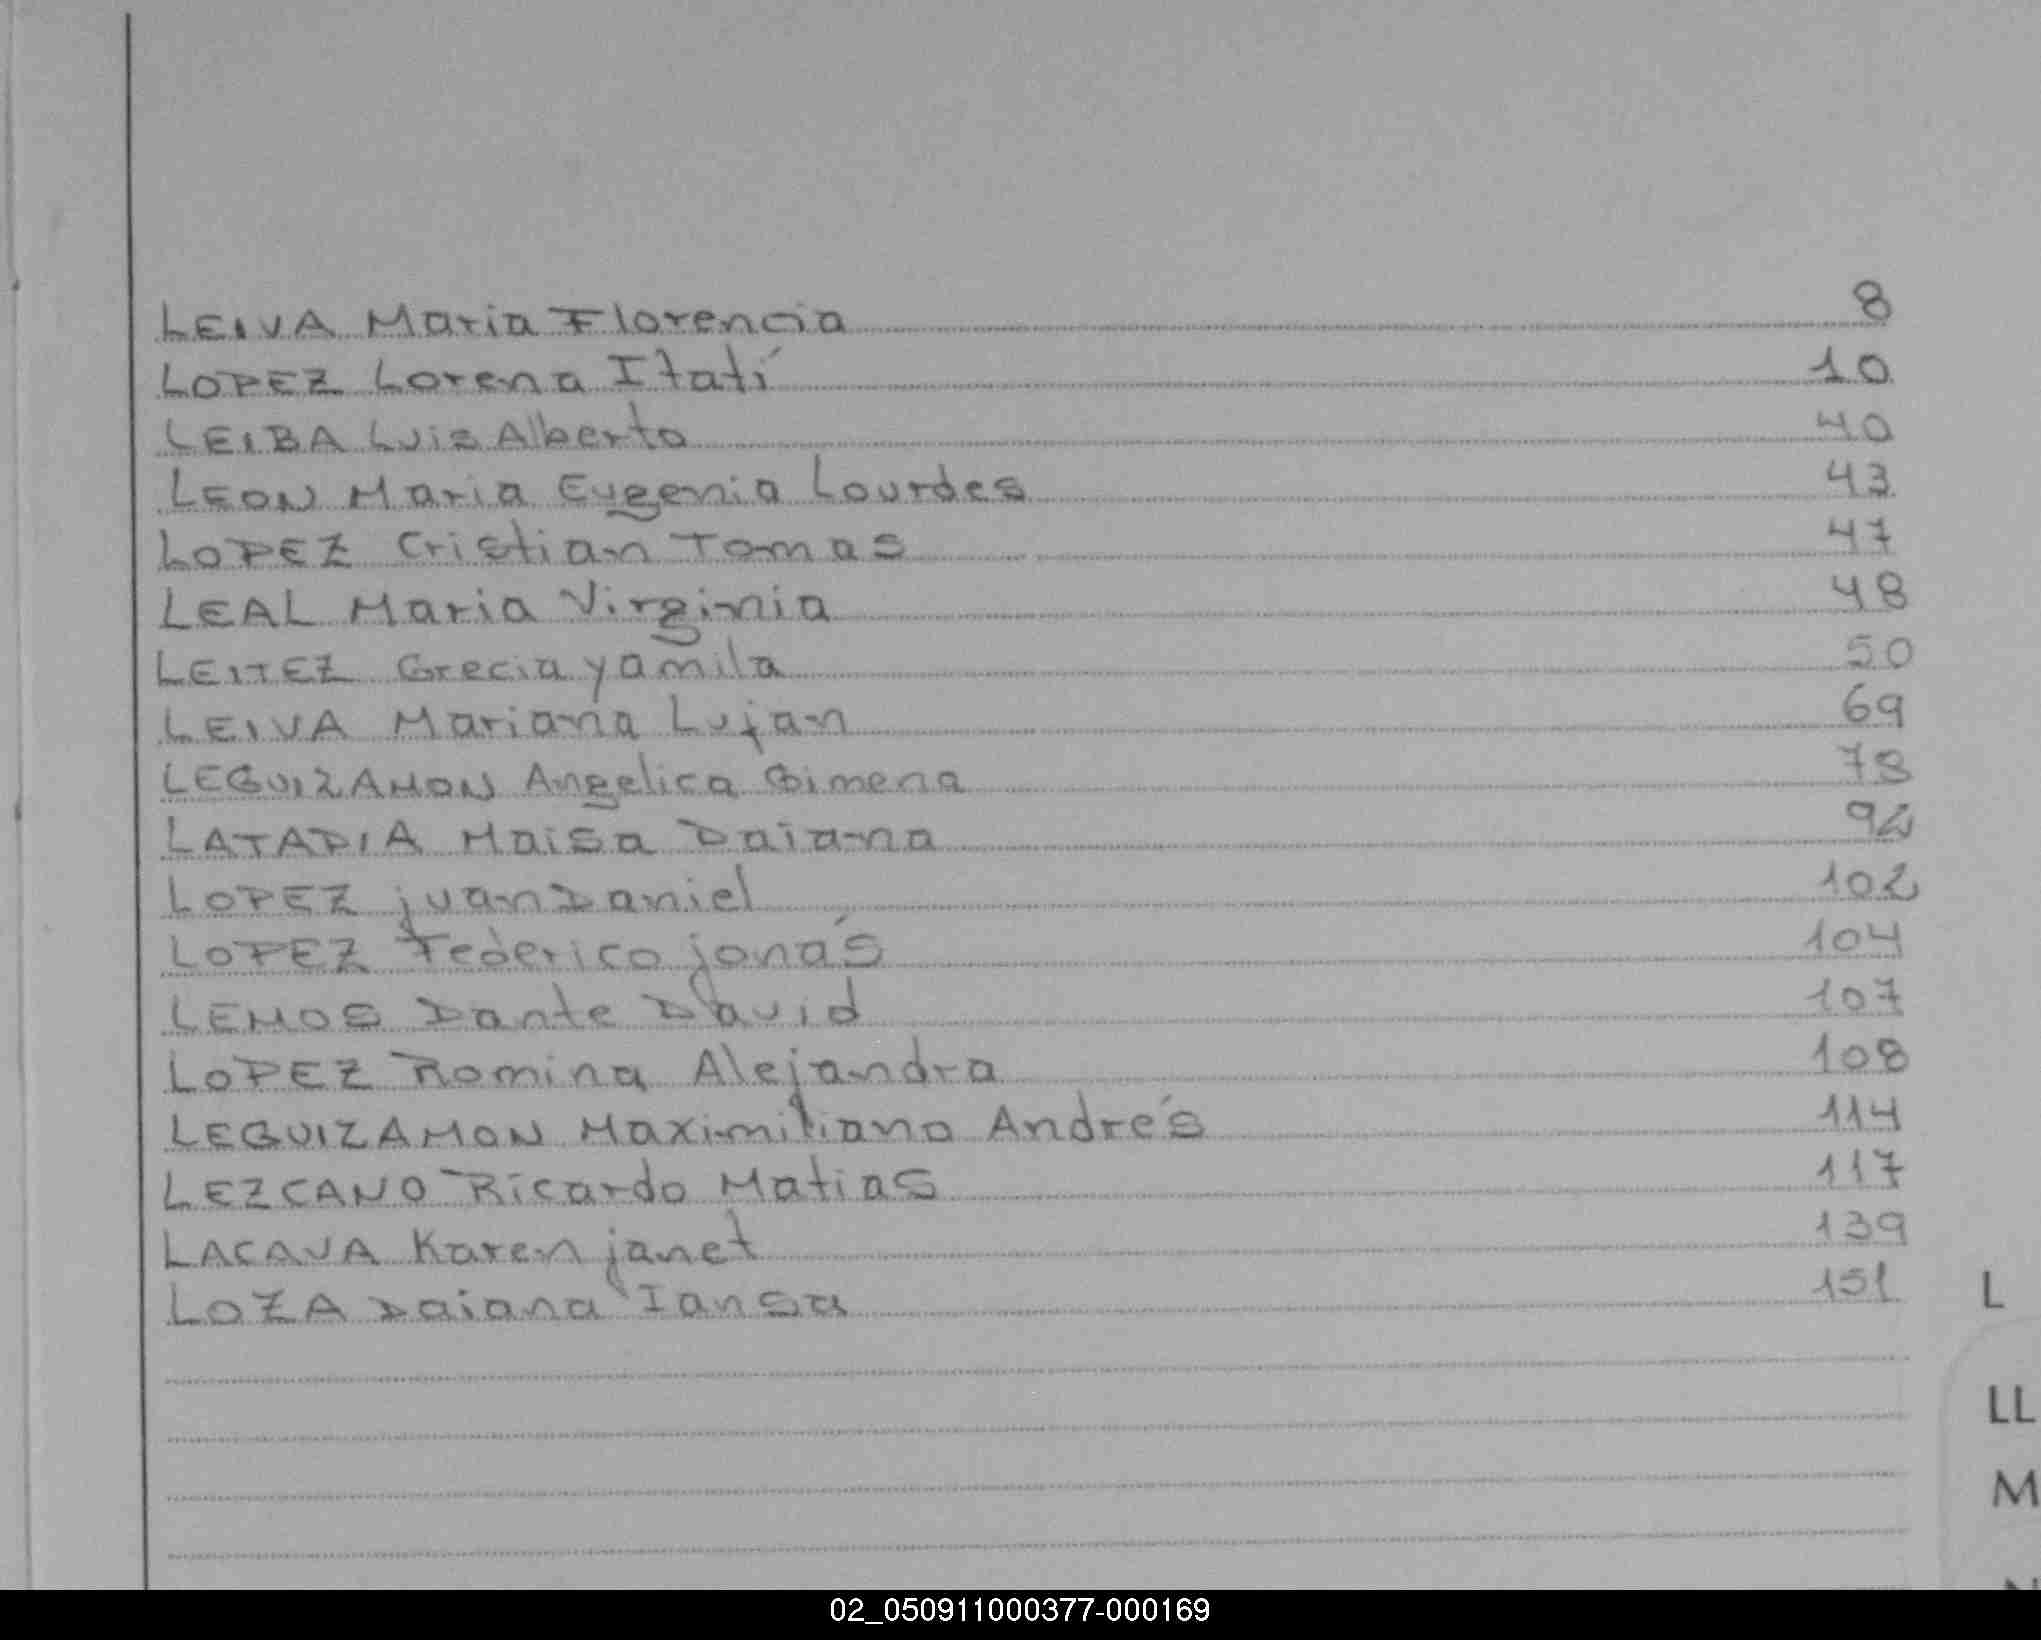 LEIVA Maria Florencia 8
LOPEZ Lorena Itatí 10
LEIBA Luis Alberto 40
LEON Maria Eugenia Lourdes 43
LOPEZ Cristian Tomas 47
LEAL Maria Virginia 48
LEITEZ Grecia yamila 50
LEIVA Mariana Lujan 69
LEGUIZAMON Angelica Gimena
LATADIA Maisa Daiana 92
LOPEZ juan Daniel 102
LOPEZ Federico jonás 104
LEMOS Dante David 107
LOPEZ Romina Alejandra 108
LEGUIZAMON Maximiliano Andrés 114
LEZCANO Ricardo Matias 117
LACAVA Karen janet 139
LOZA Daiana Iansa 151
L
LL
M
02_050911000377-000169